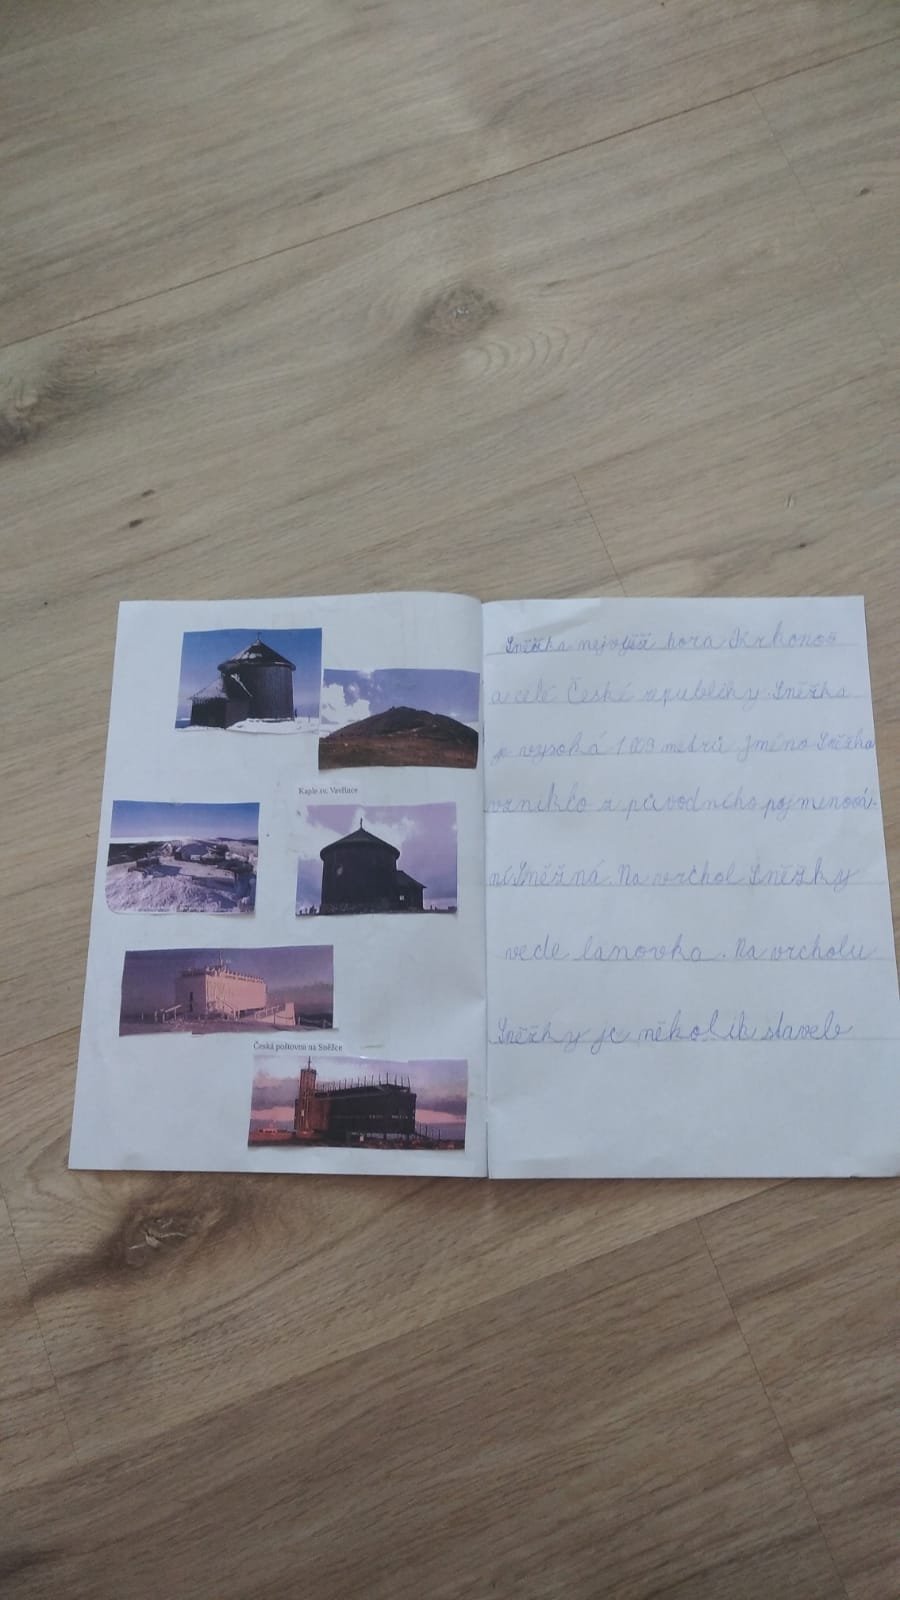 Kaple sv. Vavřince
Česká poštovna na Sněžce
Sněžka nejvyšší hora Krkonoš
a celé České republiky. Sněžka
je vysoká 1 603 metrů. Jméno Sněžka
vzniklo z původního pojmenová-
ní Sněžná. Na vrchol Sněžky
vede lanovka. Na vrcholu
Sněžky je několik staveb